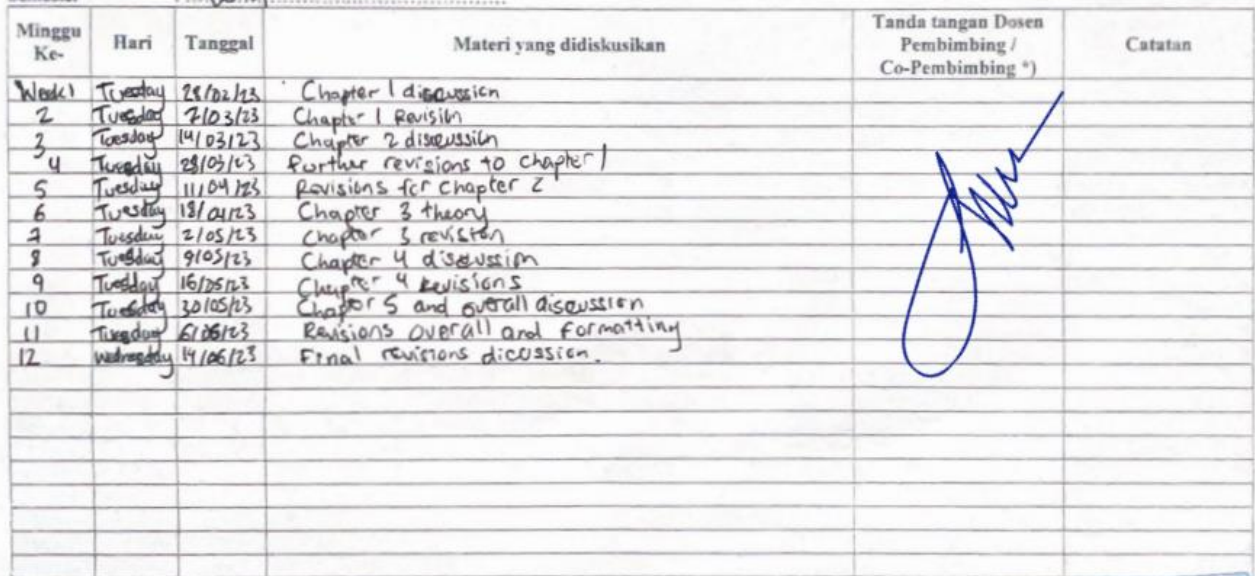 Minggu Ke- Hari Tanggal Materi yang didiskusikan Tanda tangan Dosen Pembimbing / Co-Pembimbing *) Catatan
Week 1 Tuesday 28/02/23 Chapter 1 discussion
2 Tuesday 7/03/23 Chapter 1 Revisin
3 Tuesday 14/03/23 Chapter 2 discussion
4 Tuesday 28/03/23 Further revisions to chapter 1
5 Tuesday 11/04/23 Revisions for chapter 2
6 Tuesday 18/04/23 Chapter 3 theory
7 Tuesday 2/05/23 Chapter 3 revision
8 Tuesday 9/05/23 Chapter 4 discussion
9 Tuesday 16/05/23 Chapter 4 Revisions
10 Tuesday 30/05/23 Chapter 5 and overall discussion
11 Tuesday 6/06/23 Revisions overall and formatting
12 Wednesday 14/06/23 Final revisions dicussion.